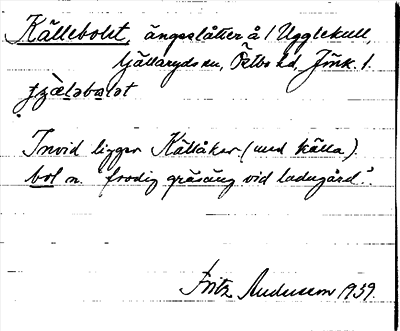 Källebolet, ängsslåtter å 1 Ugglekull,
Gällaryds sn, Östbo hd, Jönk. l.
Invid ligger Källåker (med källa).
bol n. "frodig gräsäng vid ladugård".
Fritz Andersson 1939.